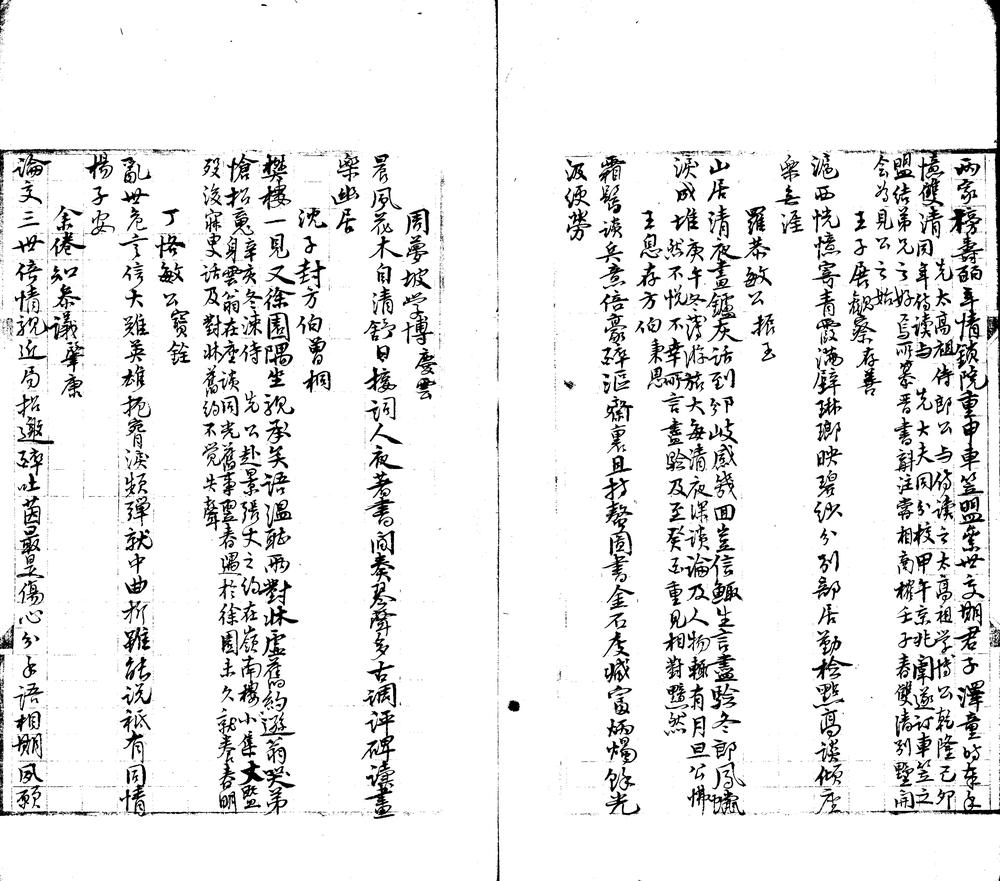 兩家積壽酌年情鎖院重申車笠盟累世交期君子澤童時奉手
憶雙清 先太高祖侍郎公与侍讀之太高祖学博公乾隆己卯
同年侍讀与 先大夫同分校甲午京兆闈遂訂車笠之
盟結弟兄之好 晋書斠注 相商榷壬子春雙清别墅開
会為見公之始
王子展觀察存善
滬西恍憶寄青霞滿壁琳瑯映碧紗分别部居勤檢點高談傾座
樂無涯
羅恭敏公振玉
山居清夜畫鑪灰話到分岐感幾回豈信鯫生言盡驗冬郎鳳蠟
淚成堆 庚午冬薄游 大每清夜深談論及人物輒有月旦公怫
然不悦不幸所言盡驗及至癸 重見相對黯然
王息存方伯秉恩
霜髯談兵意倍豪碎漚齋裏且持螯圖書金石度藏富炳燭餘光
汲綆勞
周夢坡学博慶雲
晨風花木自清舒日接詞人夜著書間奏琴聲多古調評碑讀畫
樂幽居
沈子封方伯曾桐
樊樓一見又徐園隅坐親承笑語溫聽雨對牀虛舊約遯翁哭弟
愴招䰟 辛亥冬涑侍 先公赴景張丈之約在嶺南樓小集大 
身雲翁在座談同光舊事 春遇於徐園未久就養春明
歿後寐叟話及對牀舊約不覺失聲
丁恪敏公寶銓
亂世危言信大難英雄扼脕淚頻彈就中曲折雖能説祇有同情
楊子安
余倦知參議肇康
論文三世倍情親近局招邀碎吐茵最是傷心分手語相期夙願